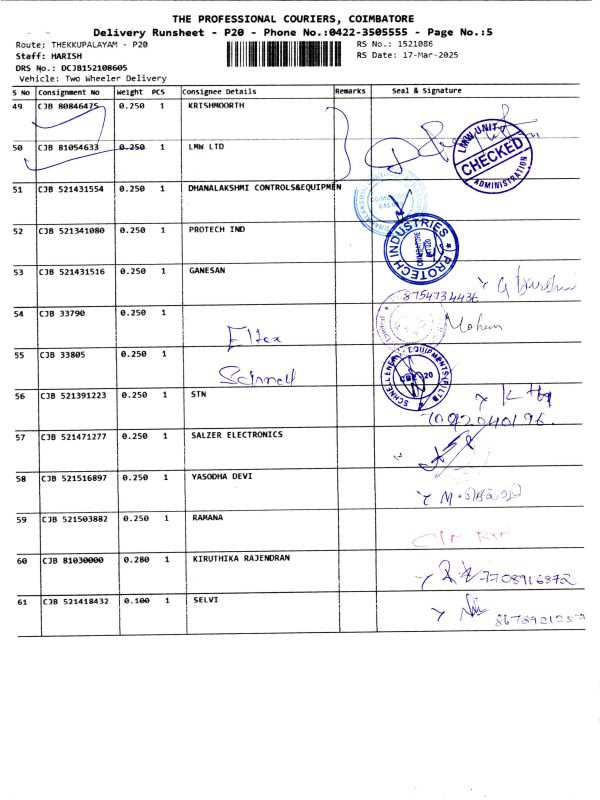 THE PROFESSIONAL COURIERS, COIMBATORE
Delivery Runsheet - P20 - Phone No.:0422-3505555 - Page No.:5
Route; THEKKUPALAYAM - P20
RS No.: 1521086
Staff: HARISH
RS Date: 17-Mar-2025
DRS No.: DCJB152108605
Vehicle: Two Wheeler Delivery
S No Consignment No Weight PCS Consignee Details Remarks Seal & Signature
49 CJB 80846475 0.250 1 KRISHMOORTH
50 CJB 81054633 0.250 1 LMW LTD
LMW UNIT
CHECKED
ADMINISTRATION
51 CJB 521431554 0.250 1 DHANALAKSHMI CONTROLS&EQUIPMEN
52 CJB 521341080 0.250 1 PROTECH IND
PROTECH INDUSTRIES
COIMBATORE
53 CJB 521431516 0.250 1 GANESAN
8754734436
54 CJB 33790 0.250 1
Eltex
Mohan
55 CJB 33805 0.250 1
Schnell
SCHNELLENER EQUIPMENTS(P)LTD
CBE 20
56 CJB 521391223 0.250 1 STN
57 CJB 521471277 0.250 1 SALZER ELECTRONICS
58 CJB 521516897 0.250 1 YASODHA DEVI
59 CJB 521503882 0.250 1 RAMANA
60 CJB 81030000 0.280 1 KIRUTHIKA RAJENDRAN
7708916872
61 CJB 521418432 0.100 1 SELVI